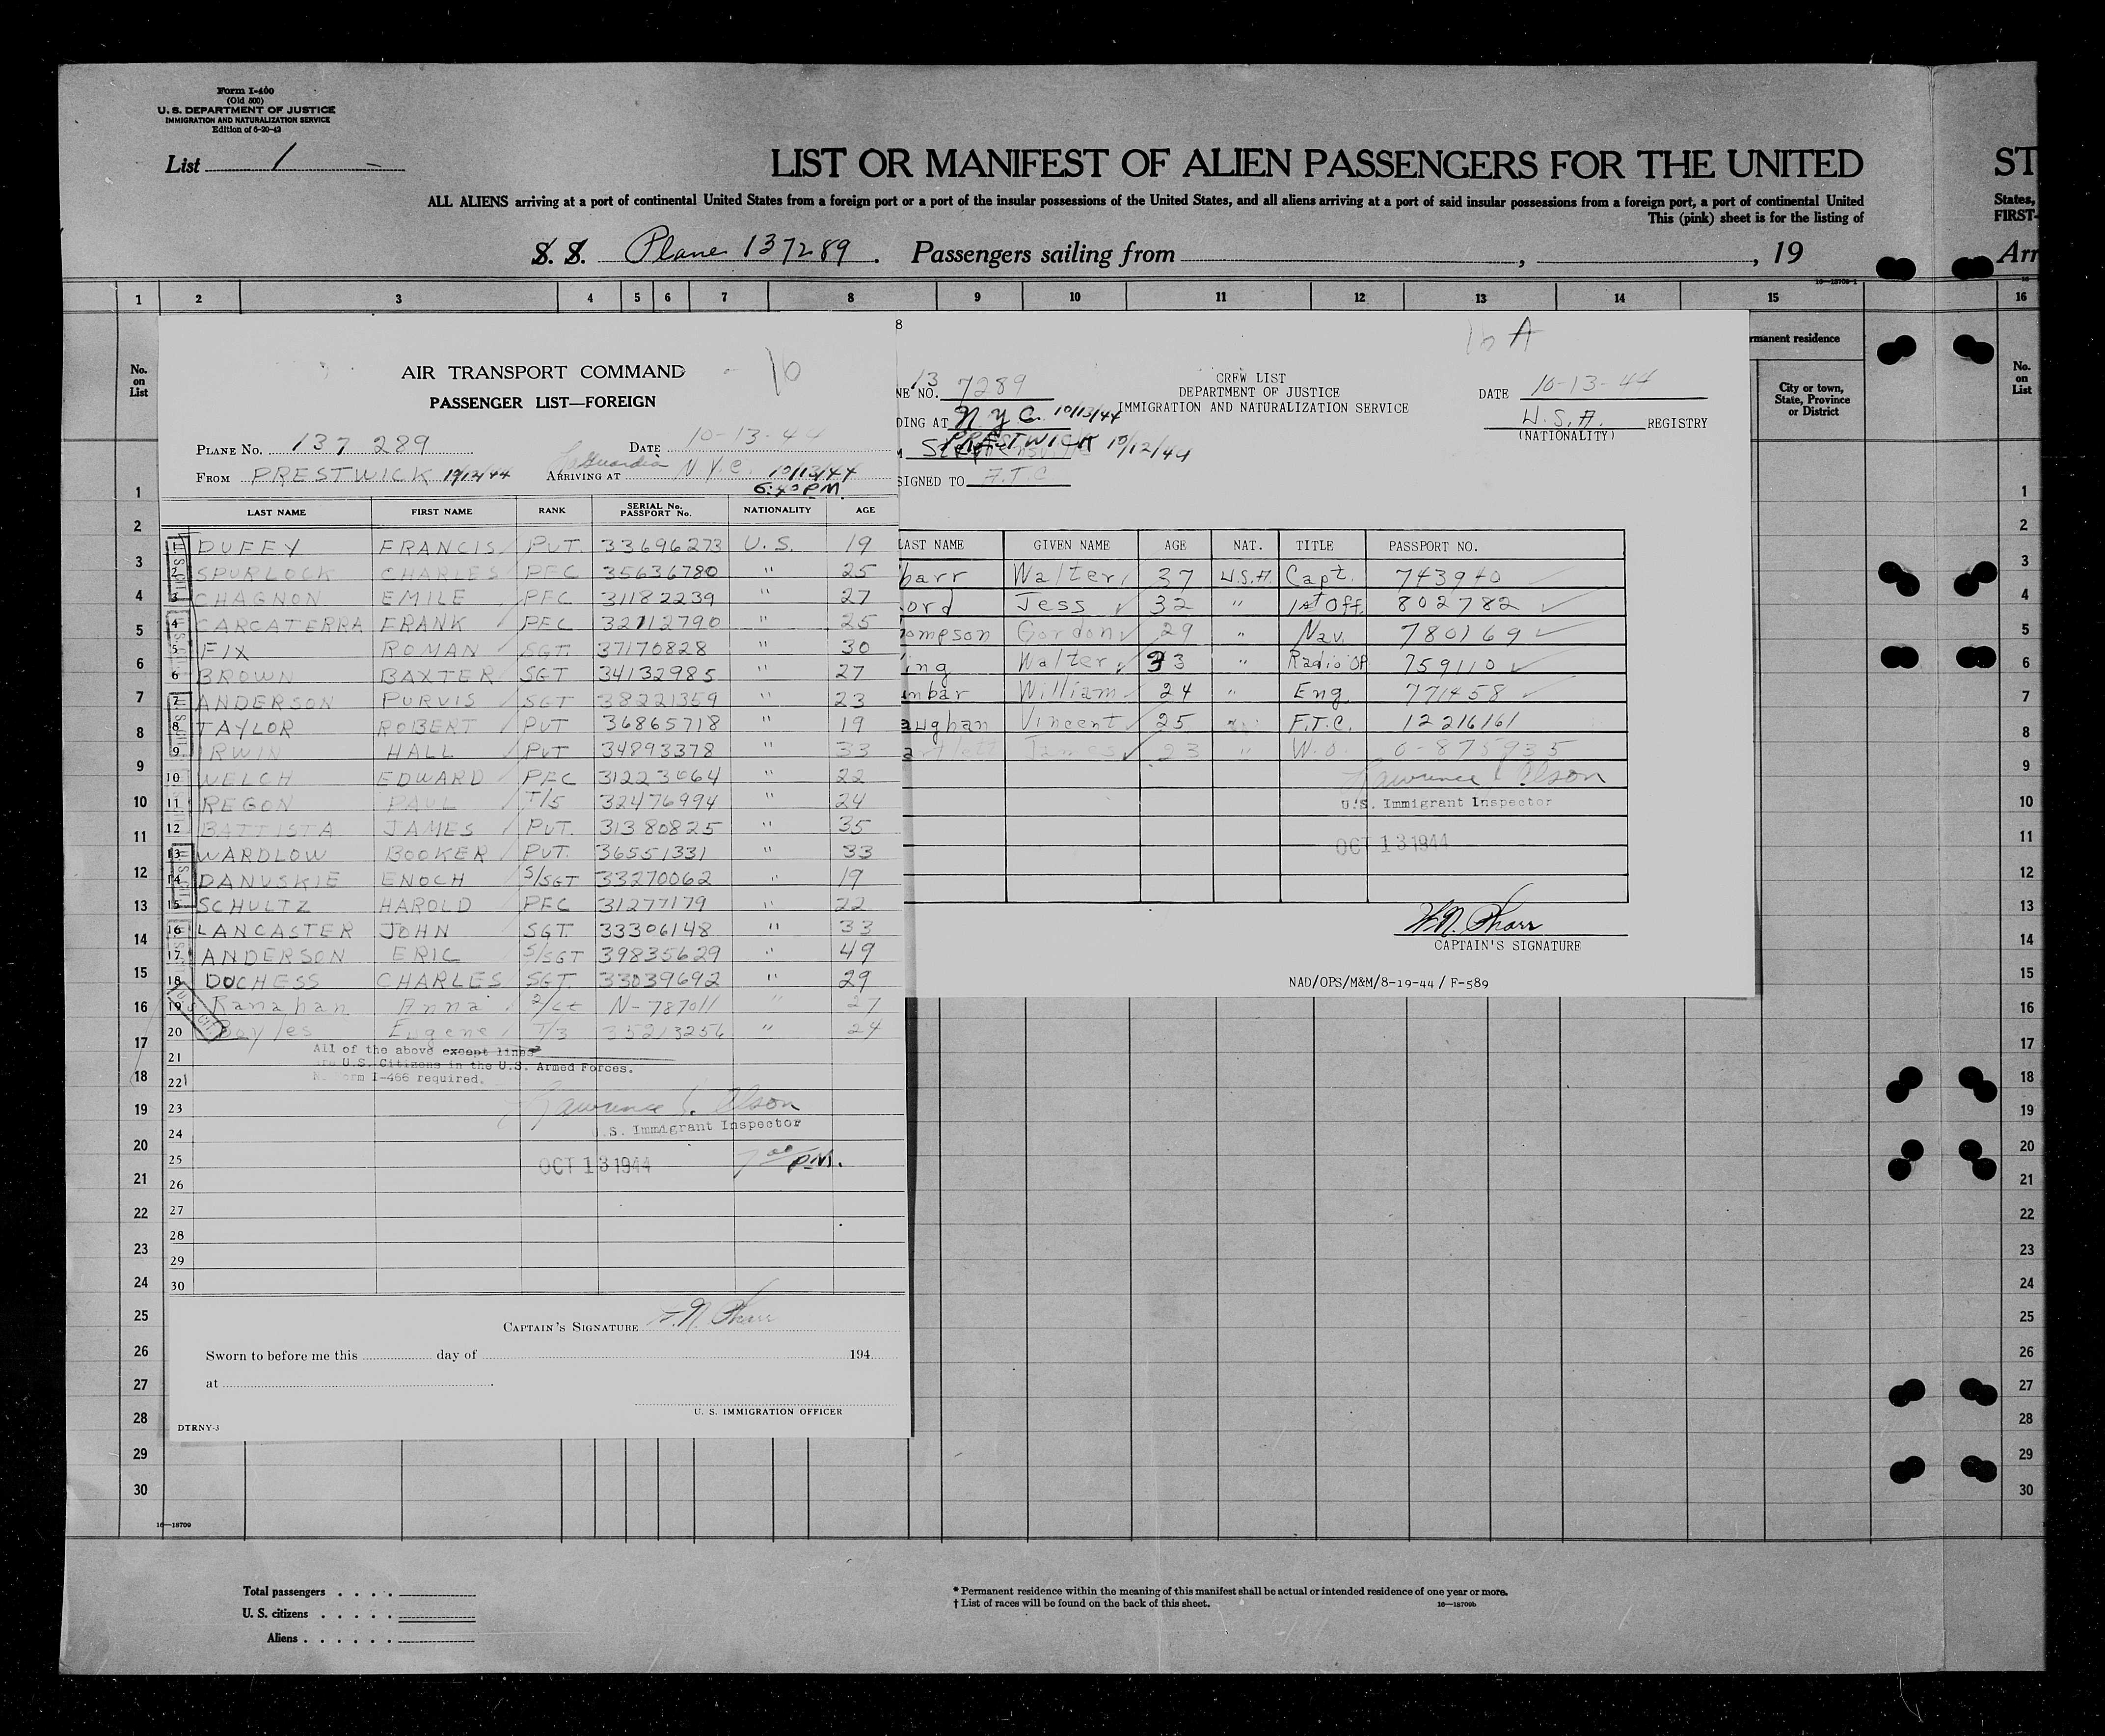 Form I-460
(Old 500)
U. S. DEPARTMENT OF JUSTICE
IMMIGRATION AND NATURALIZATION SERVICE
Edition of 6-20-42
List 1
LIST OR MANIFEST OF ALIEN PASSENGERS FOR THE UNITED
ST
ALL ALIENS arriving at a port of continental United States from a foreign port or a port of the insular possessions of the United States, and all aliens arriving at a port of said insular possessions from a foreign port, a port of continental United
States,
This (pink) sheet is for the listing of
FIRST-
S. S. Plane 137289. Passengers sailing from , , 19
Arr
16—18709-1
1 2 3 4 5 6 7 8 9 10 11 12 13 14 15 16
No. on List
rmanent residence
City or town, State, Province or District
No. on List
AIR TRANSPORT COMMAND 10
PASSENGER LIST—FOREIGN
PLANE No. 137 289 DATE 10-13-44
FROM PRESTWICK 10/12/44 ARRIVING AT LaGuardia N.Y.C. 10/13/44
6:40 P.M.
LAST NAME FIRST NAME RANK SERIAL No. PASSPORT No. NATIONALITY AGE
1 DUFFY FRANCIS PVT. 33696273 U.S. 19
2 SPURLOCK CHARLES PFC 35636780 " 25
3 CHAGNON EMILE PFC 31182239 " 27
4 CARCATERRA FRANK PFC 32712790 " 25
5 FIX ROMAN SGT. 37170828 30
6 BROWN BAXTER SGT 34132985 " 27
7 ANDERSON PURVIS SGT 38221359 " 23
8 TAYLOR ROBERT PVT 36865718 " 19
9 IRWIN HALL PVT 34893378 " 33
10 WELCH EDWARD PFC 31223064 " 22
11 REGON PAUL T/5 32476994 " 24
12 BATTISTA JAMES PVT. 31380825 " 35
13 WARDLOW BOOKER PVT. 36551331 " 33
14 DANUSKIE ENOCH S/SGT 33270062 " 19
15 SCHULTZ HAROLD PFC 31277179 " 22
16 LANCASTER JOHN SGT. 33306148 " 33
17 ANDERSON ERIC S/SGT 39835629 " 49
18 DUCHESS CHARLES SGT. 33039692 " 29
19 Ranahan Anna 2/Lt N-787011 " 27
20 Bayles Eugene T/3 35213256 " 24
21 All of the above except lines
are U.S. Citizens in the U.S. Armed Forces.
22 No Form I-466 required.
23 Lawrence Olson
24 U.S. Immigrant Inspector
25 OCT 13 1944 7 00 P.M.
26
27
28
29
30
CAPTAIN'S SIGNATURE W.N. Pharr
Sworn to before me this day of 194
at
U. S. IMMIGRATION OFFICER
DTRNY-3
8
10 A
CREW LIST
NE NO. 137289 DEPARTMENT OF JUSTICE DATE 10-13-44
DING AT N.Y.C. 10/13/44 IMMIGRATION AND NATURALIZATION SERVICE U.S.A. REGISTRY
(NATIONALITY)
PRESTWICK 10/12/44
SIGNED TO A.T.C
LAST NAME GIVEN NAME AGE NAT. TITLE PASSPORT NO.
harr Walter 37 U.S.A. Capt. 743940
ord Jess 32 " 1st Off. 802782
ompson Gordon 29 " Nav. 780169
ing Walter 33 " Radio OP 759110
mbar William 24 " Eng 771458
aughan Vincent 25 " F.T.C. 12216161
artlett James 23 " W.O. O-875935
Lawrence Olson
U.S. Immigrant Inspector
OCT 13 1944
W.N. Pharr
CAPTAIN'S SIGNATURE
NAD/OPS/M&M/8-19-44/F-589
1
2
3
4
5
6
7
8
9
10
11
12
13
14
15
16
17
18
19
20
21
22
23
24
25
26
27
28
29
30
1
2
3
4
5
6
7
8
9
10
11
12
13
14
15
16
17
18
19
20
21
22
23
24
25
26
27
28
29
30
16—18709
Total passengers
U. S. citizens
Aliens
* Permanent residence within the meaning of this manifest shall be actual or intended residence of one year or more.
† List of races will be found on the back of this sheet. 16—18709b